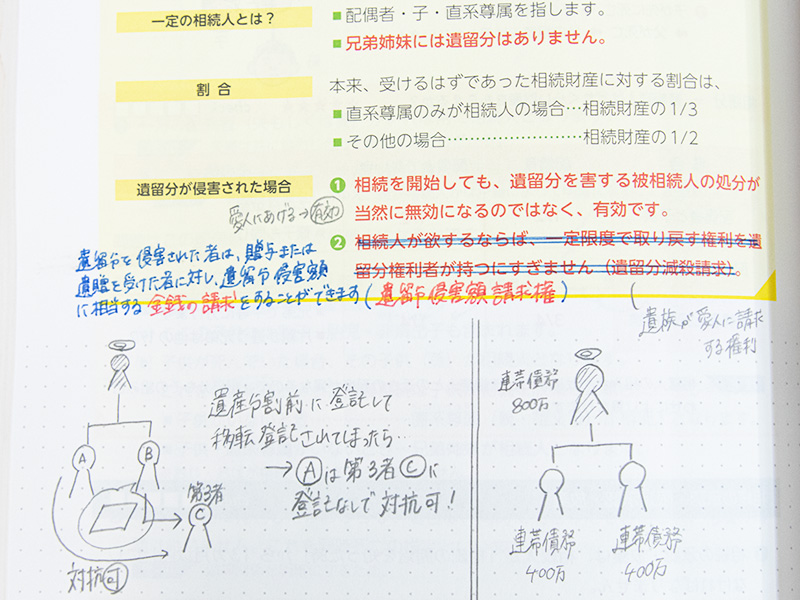 一定の相続人とは？
■配偶者・子・直系尊属を指します。
■兄弟姉妹には遺留分はありません。
割合
本来、受けるはずであった相続財産に対する割合は、
■直系尊属のみが相続人の場合…相続財産の1/3
■その他の場合……………………相続財産の1/2
遺留分が侵害された場合
❶ 相続を開始しても、遺留分を害する被相続人の処分が
当然に無効になるのではなく、有効です。
愛人にあげる→有効
❷ 相続人が欲するならば、一定限度で取り戻す権利を遺
留分権利者が持つにすぎません（遺留分減殺請求）。
遺留分を侵害された者は、贈与または
遺贈を受けた者に対し、遺留分侵害額
に相当する金銭の請求をすることができます(遺留分侵害額請求権)
(遺族が愛人に請求
する権利
A
B
第3者
C
対抗可
遺産分割前に登記して
移転登記されてしまったら…
→Aは第3者Cに
登記なしで対抗可！
連帯債務
800万
連帯債務
400万
連帯債務
400万